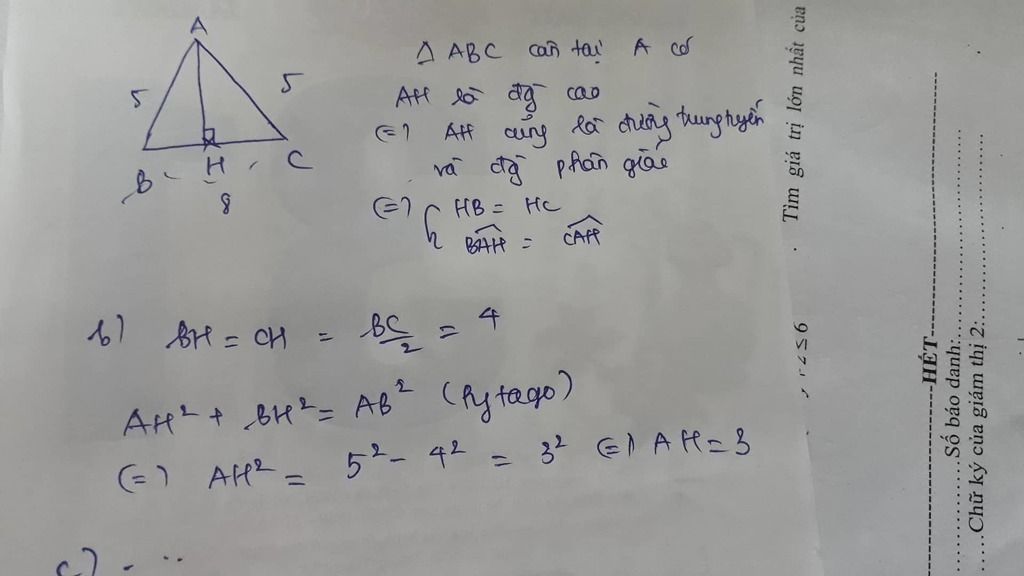 A
5
5
B
H
C
8
Δ ABC cân tại A có
AH là đg cao
(=) AH cũng là đường trung tuyến
và đg phân giác
(=) { HB = HC
BAH = CAH
b) BH = CH = BC/2 = 4
AH² + BH² = AB² (Pytago)
(=) AH² = 5² - 4² = 3² (=) AH = 3
c) . ..
Tìm giá trị lớn nhất của
≤ 6
HẾT
Số báo danh:
Chữ ký của giám thị 2: